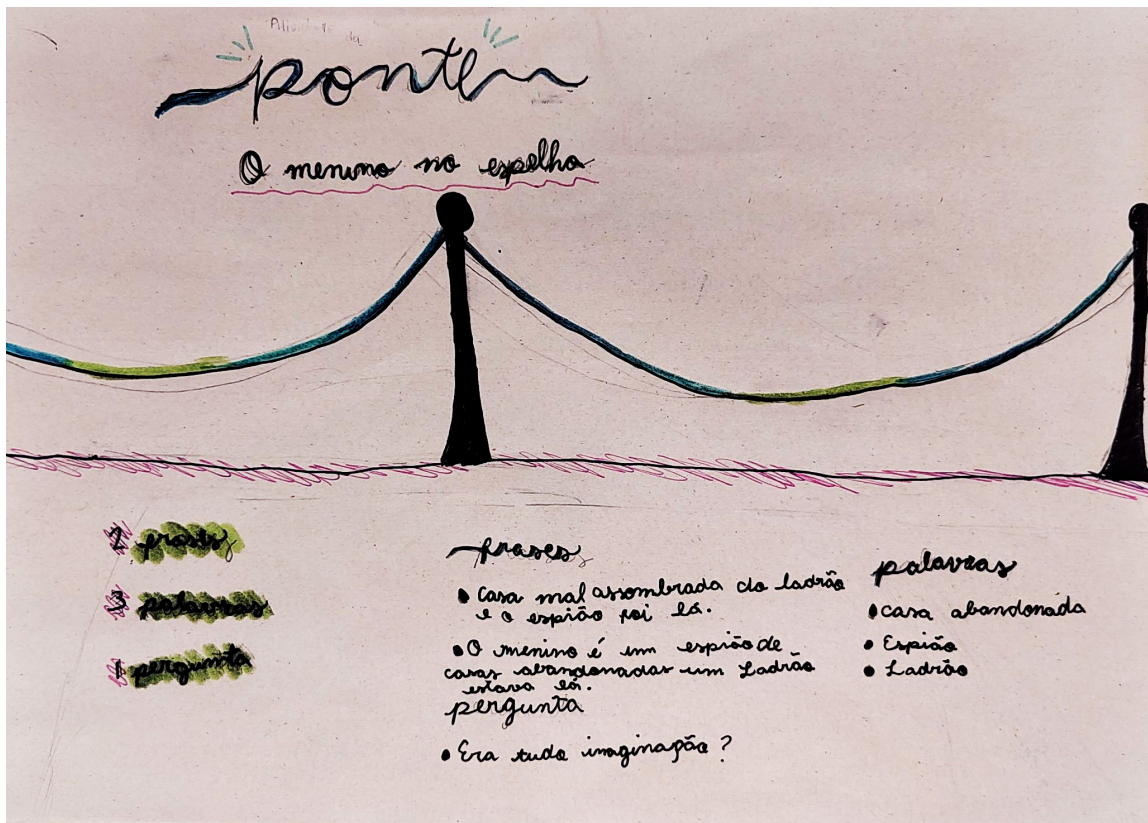 Atividade da
ponte
O menino no espelho
2 frases
3 palavras
1 pergunta
frases
• Casa mal assombrada do ladrão
e o espião foi lá.
• O menino é um espião de
casas abandonadas um Ladrão
estava lá.
pergunta
• Era tudo imaginação?
palavras
• casa abandonada
• Espião
• Ladrão